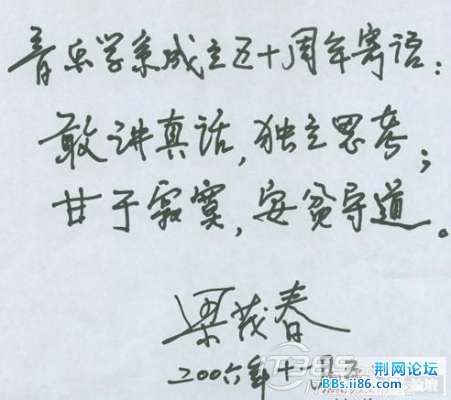 音乐学系成立五十周年寄语：
敢讲真话，独立思考；
甘于寂寞，安贫守道。
梁茂春
2006年十
荆网论坛
BBs.ii86.com